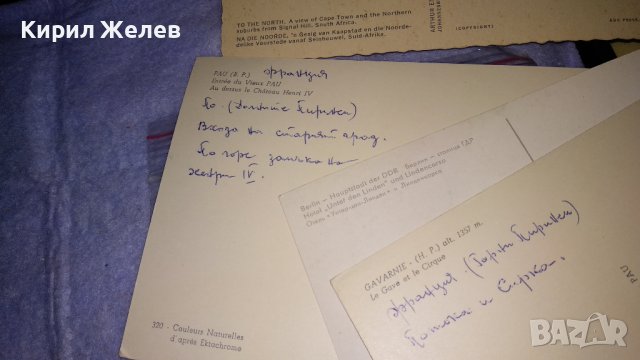 Кирил Желев
TO THE NORTH. A view of Cape Town and the Northern
suburbs from Signal Hill, South Africa.
NA DIE NOORDE, 'n Gesig van Kaapstad en die Noorde-
delike Voorstede vanaf Seinheuwel, Suid-Afrika.
ARTHUR
JOHANNESBURG
(COPYRIGHT)
PAU (B. P.) Франция
Entrée du Vieux PAU
Au dessus le Château Henri IV
По (Долните Пиринеи)
Входа на старият град.
По горе замъка на
Хенри IV.
320 - Couleurs Naturelles
d'après Ektachrome
Berlin - Hauptstadt der DDR Берлин - столица ГДР
Hotel „Unter den Linden" und Lindencorso
Отель «Унтер-ден-Линден» и Линденкорсо
GAVARNIE - (H. P.) alt. 1357 m.
Le Gave et le Cirque
Франция (Горни Пиринеи)
Потока и Сирка.
PAU
BAZAR.BG